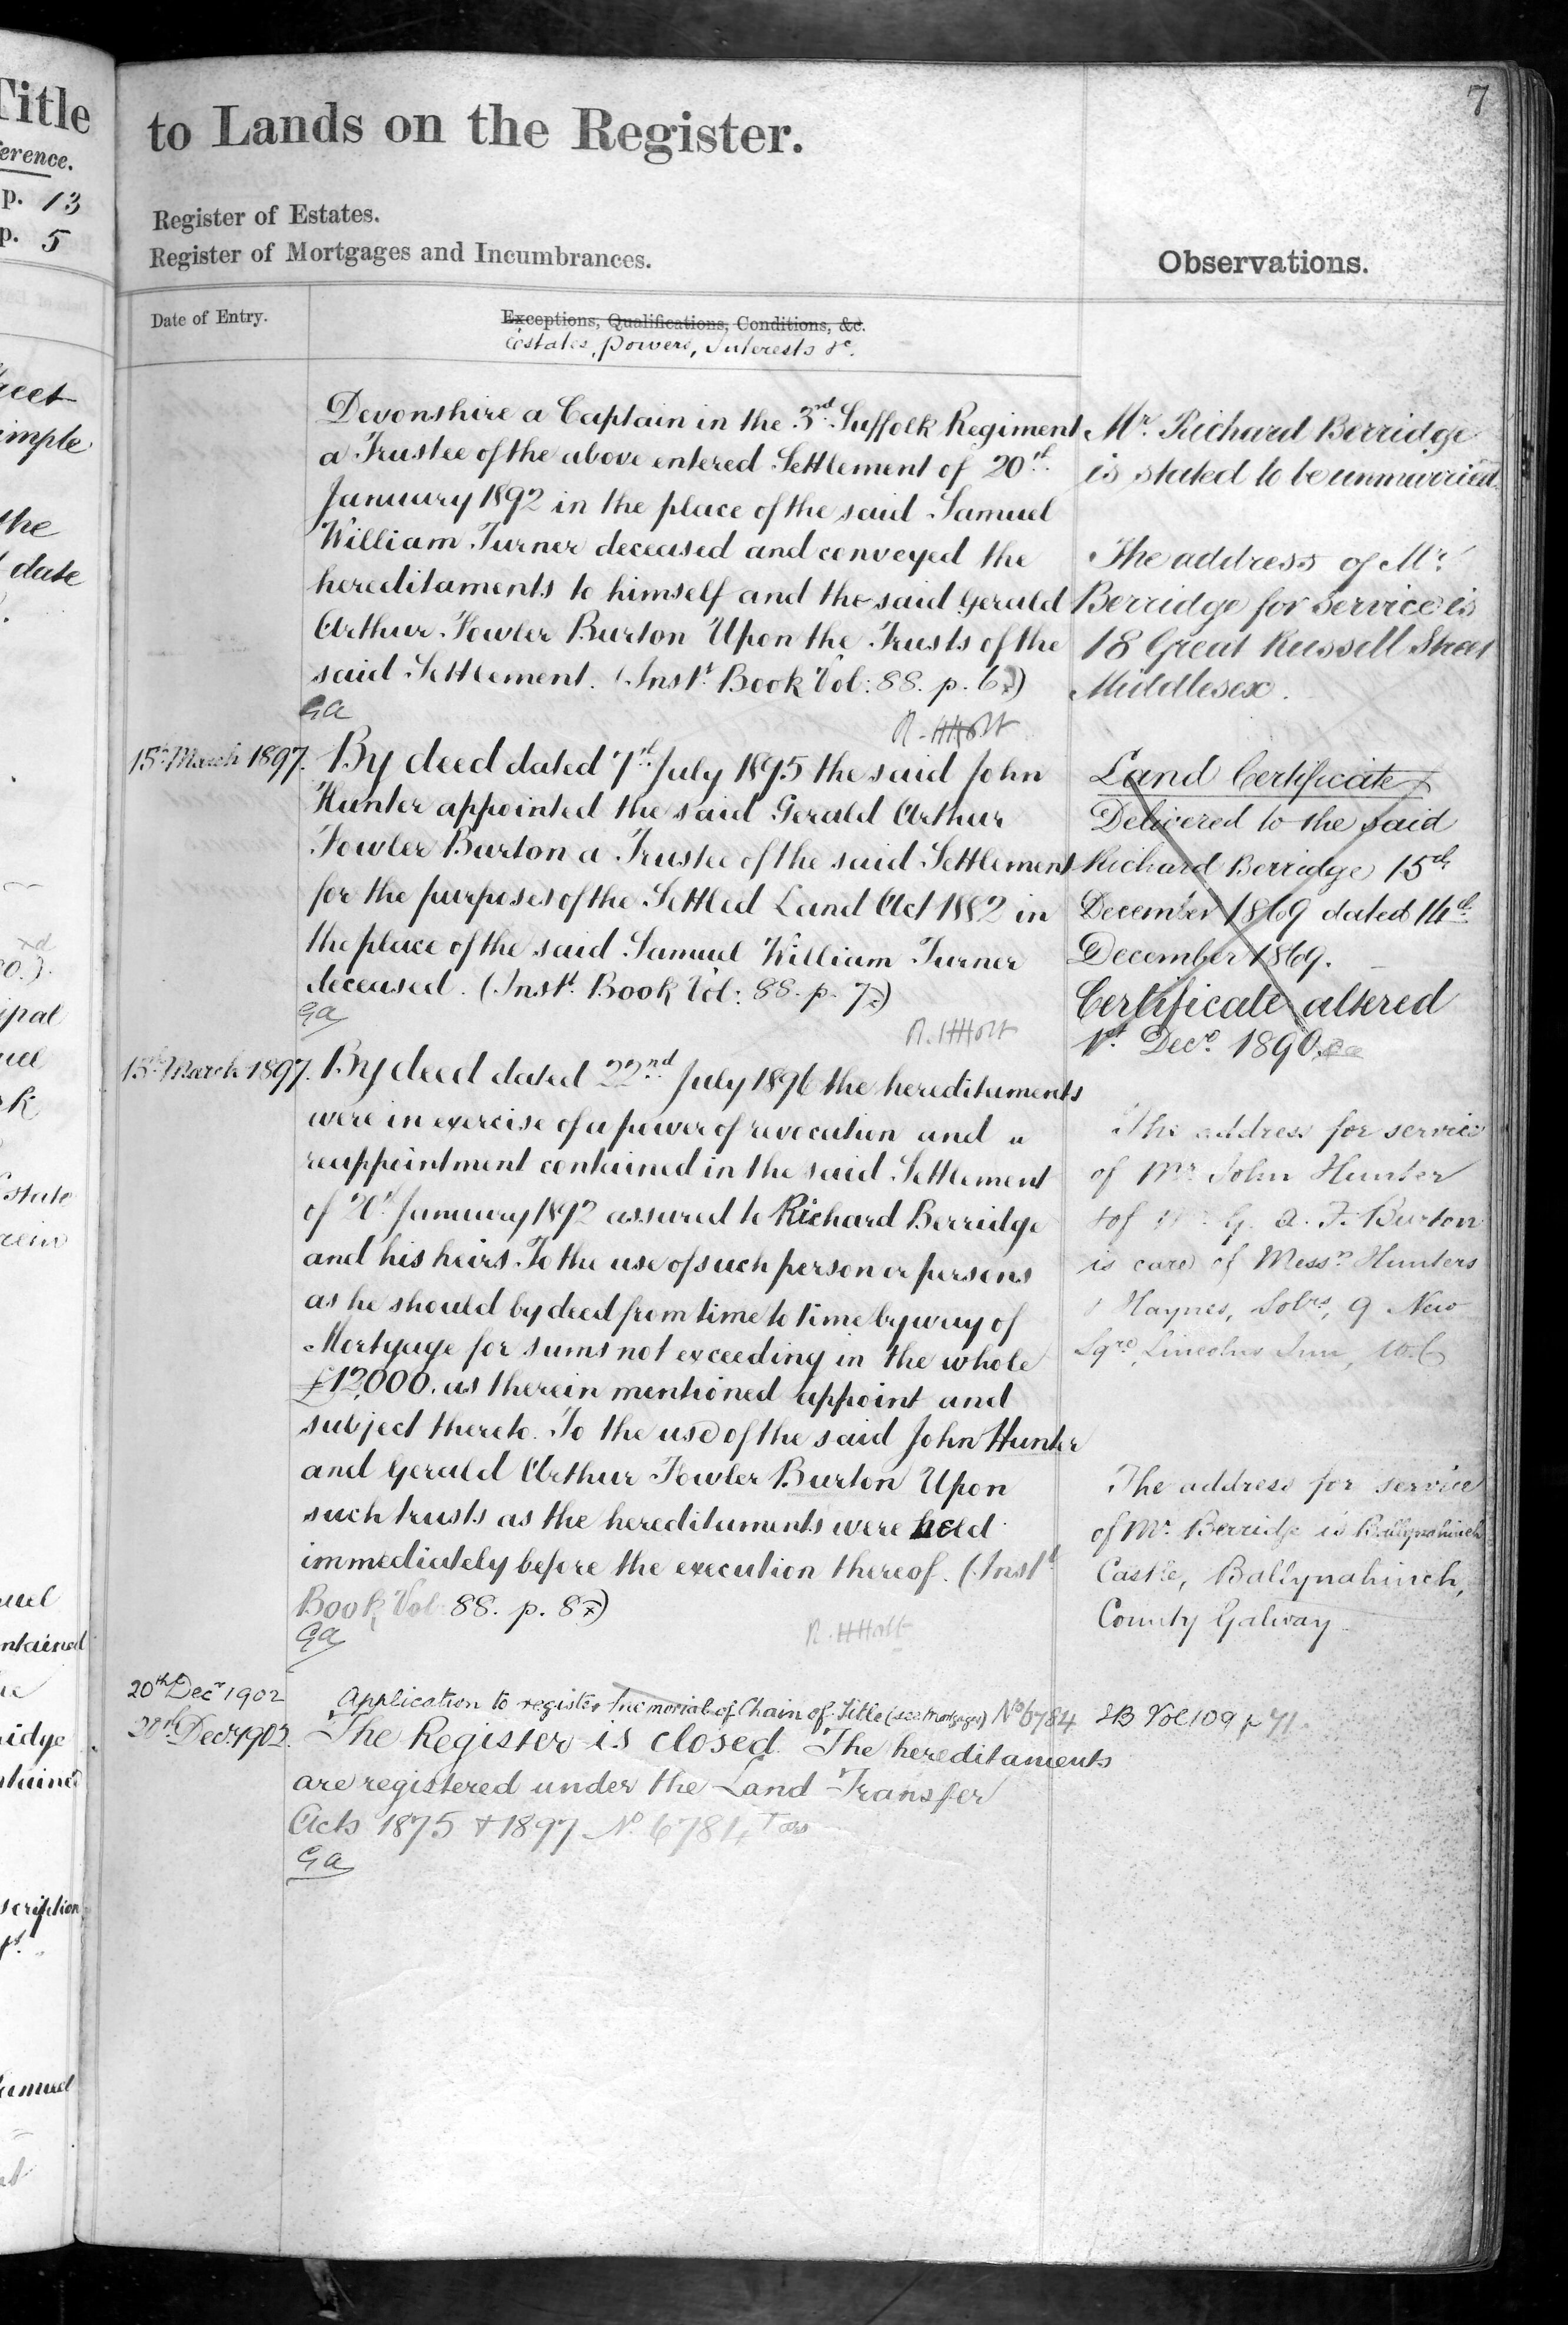 Title
to Lands on the Register.
7
ference.
p. 13
p. 5
Register of Estates.
Register of Mortgages and Incumbrances.
Observations.
Date of Entry.
Exceptions, Qualifications, Conditions, &c.
Estates, powers, Interests &c.
Devonshire a Captain in the 3rd Suffolk Regiment
a Trustee of the above entered Settlement of 20th
January 1892 in the place of the said Samuel
William Turner deceased and conveyed the
hereditaments to himself and the said Gerald
Arthur Fowler Burton Upon the Trusts of the
said Settlement. (Inst. Book Vol: 88. p. 6)
GA
R. HHolt
15th March 1897.
By deed dated 7th July 1895 the said John
Hunter appointed the said Gerald Arthur
Fowler Burton a Trustee of the said Settlement
for the purposes of the Settled Land Act 1882 in
the place of the said Samuel William Turner
deceased. (Inst. Book Vol: 88. p. 7)
GA
R. HHolt
15th March 1897.
By deed dated 22nd July 1896 the hereditaments
were in exercise of a power of revocation and
reappointment contained in the said Settlement
of 20th January 1892 assured to Richard Berridge
and his heirs To the use of such person or persons
as he should by deed from time to time by way of
Mortgage for sums not exceeding in the whole
£12,000. as therein mentioned appoint and
subject thereto. To the use of the said John Hunter
and Gerald Arthur Fowler Burton Upon
such trusts as the hereditaments were held
immediately before the execution thereof. (Inst.
Book Vol 88. p. 8)
GA
R. HHolt
20th Decr 1902
Application to register Chain of Title (see Mortgages) No 6784
Decr 1902.
The Register is closed. The hereditaments
are registered under the Land Transfer
Acts 1875 & 1897 No. 6784
GA
Mr. Richard Berridge
is stated to be unmarried.
The address of Mr.
Berridge for service is
18 Great Russell Street
Middlesex.
Land Certificate
Delivered to the said
Richard Berridge 15th
December 1869 dated 14th
December 1869.
Certificate altered
1st Decr. 1890.
The address for service
of Mr John Hunter
& of Mr. G. A. F. Burton
is care of Messrs Hunters
& Haynes, Solrs, 9 New
Sqre, Lincolns Inn, W.C
The address for service
of Mr. Berridge is Ballynahinch
Castle, Ballynahinch,
County Galway
IB Vol 109 p 71